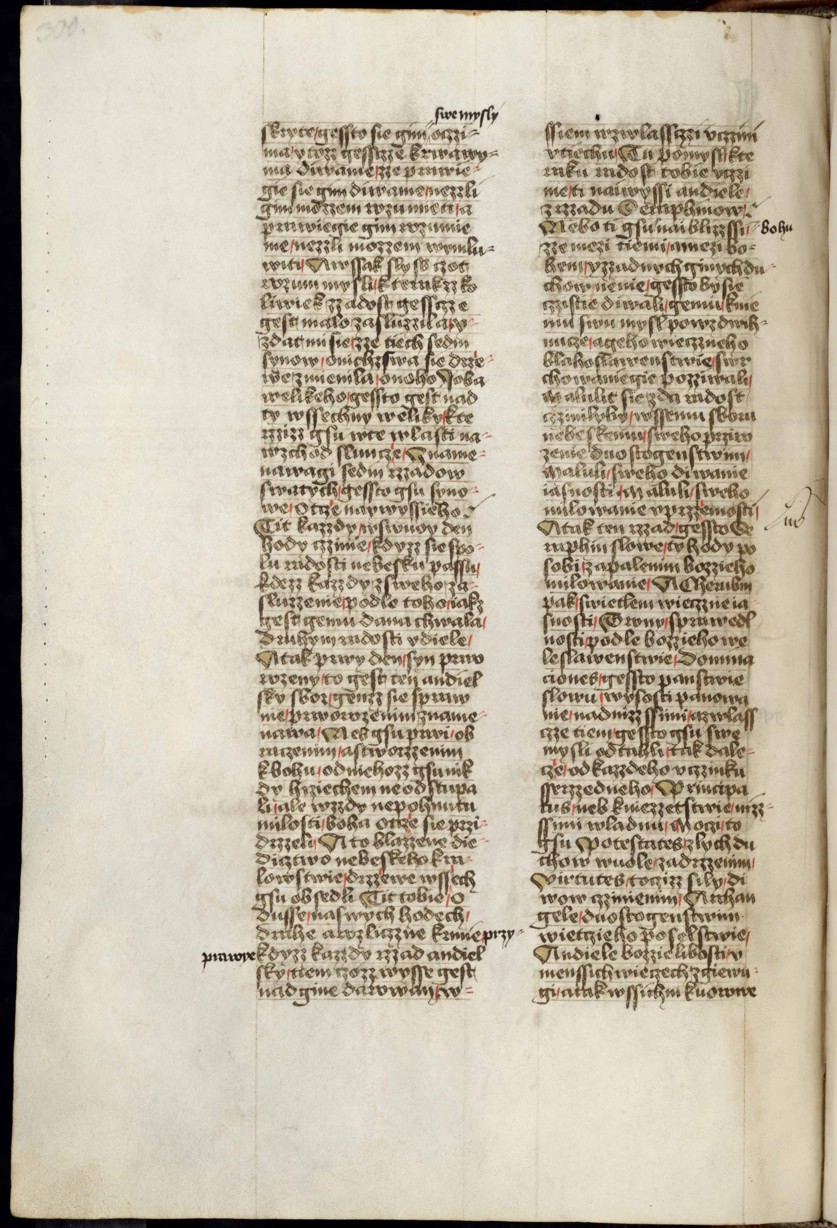 300.
swe mysly
skryte, gessto sie gim oczzi-
ma, v tozz gesscze krwawy-
ma diwame, zze prawie-
gie sie gim diwame, nezzli
gim mozzem rozumieti, a
prawiegie gim rozumie
me, nezzli mozzem wymlu-
witi, Awssak slysss czoz
rozum mysli, k temuzz ko
liwiek zzadost gesscze
gest malo zasluzzila, v-
zdat mi sie, zze tiech sedm
synow, onichz swa sie drze-
we zmienila, onoho Joba
welikeho, gessto gest nad
ty wssechny weliky, kte
rzizz gsu wte wlasti na-
wzchod sluncze, Zname-
nawagi sedm rzadow
swatych, gessto gsu syno-
we, Otcze naywyssieho.
Tit kazzdy, wswuoy den
hody czinie, kdyzz sie spo-
lu radosti nebesku passu,
kdezz kazzdy z sweho za-
sluzzenie, podle toho, iakz
gest gemu dana chwala,
druhym radosti vdiele,
Atak prwy den, syn prwo
rozeny, to gest ten andiel
sky sbor, genzz sie spraw
nie, prworozenim zname-
nawa, Neb gsu prwi, ob
raczenim, a stworzzenim
k bohu, od niehozz gsu nik
dy hrziechem neodstupa
li, ale wzzdy nepohnutu
milosti, boha otcze sie przi-
drzzeli, A to blazzene die-
dicztwo nebeskeho kra-
lowstwie, drzzewe wssech
gsu obsedli Tit tobie, o
dusse, na swych hodech,
drahe a rozliczne krmie, przy-
prawie kdyzz kazzdy rzad andiel
sky, tiem czozz wysse gest
nad gine darowan, w-
ssiem wzwlasszzi vczini
vtiechu, Tu pomysl, kte
raku radost tobie vczi
nie, ti nawyssi andiele,
z rzzadu Seraphinow,
Nebo ti gsu nai blizssi, bohu
zze mezi tiemi, a mezi bo-
hem, y zzadnych ginych du-
chow nenie, gessto by sie
czistie diwali, gemu, k nie
mu swu mysl powzdwih-
nucze, a geho wieczneho
blahoslawenstwie, swr
chowanegie pozziwali,
Malulit sie zda radost
czinily by, wssemu sboru
nebeskemu, sweho przirο
zenie duostogenstwim,
Maluli, sweho diwanie
iasnosti, Maluli, sweho
milowanie vprziemosti,
Atak ten rzzad, gessto Se
raphin slowe, ty hody po
sobi, zapalenim bozzieho
milowanie, A Cherubin
pak, swietlem wieczne ia
snosti, Trony, sprawedl
nosti, podle bozzieho we
leslawenstwie, Domina
ciones, gessto panstwie
slowu, wysosti panowa
nie, nad nizzssimi, a zwlass
cze tiem, gessto gsu swe
mysli odtahli, tak dale-
cze, od kazzdeho vczinku
sprzzedneho, Principa
tus, neb kniezzetstwie, nizz-
ssimi wladnu, Moczi, to
gsu Potestates, zlych du
chow wuole, zadrzzenim,
Virtutes, tocizz sily, di
wow czinienim, Archan
gele, duostogenstwim
wietczieho poselstwie,
Andiele bozzie libosti, v
menssich wieczech, zgiewu-
gi, a tak wssichni kuorowe